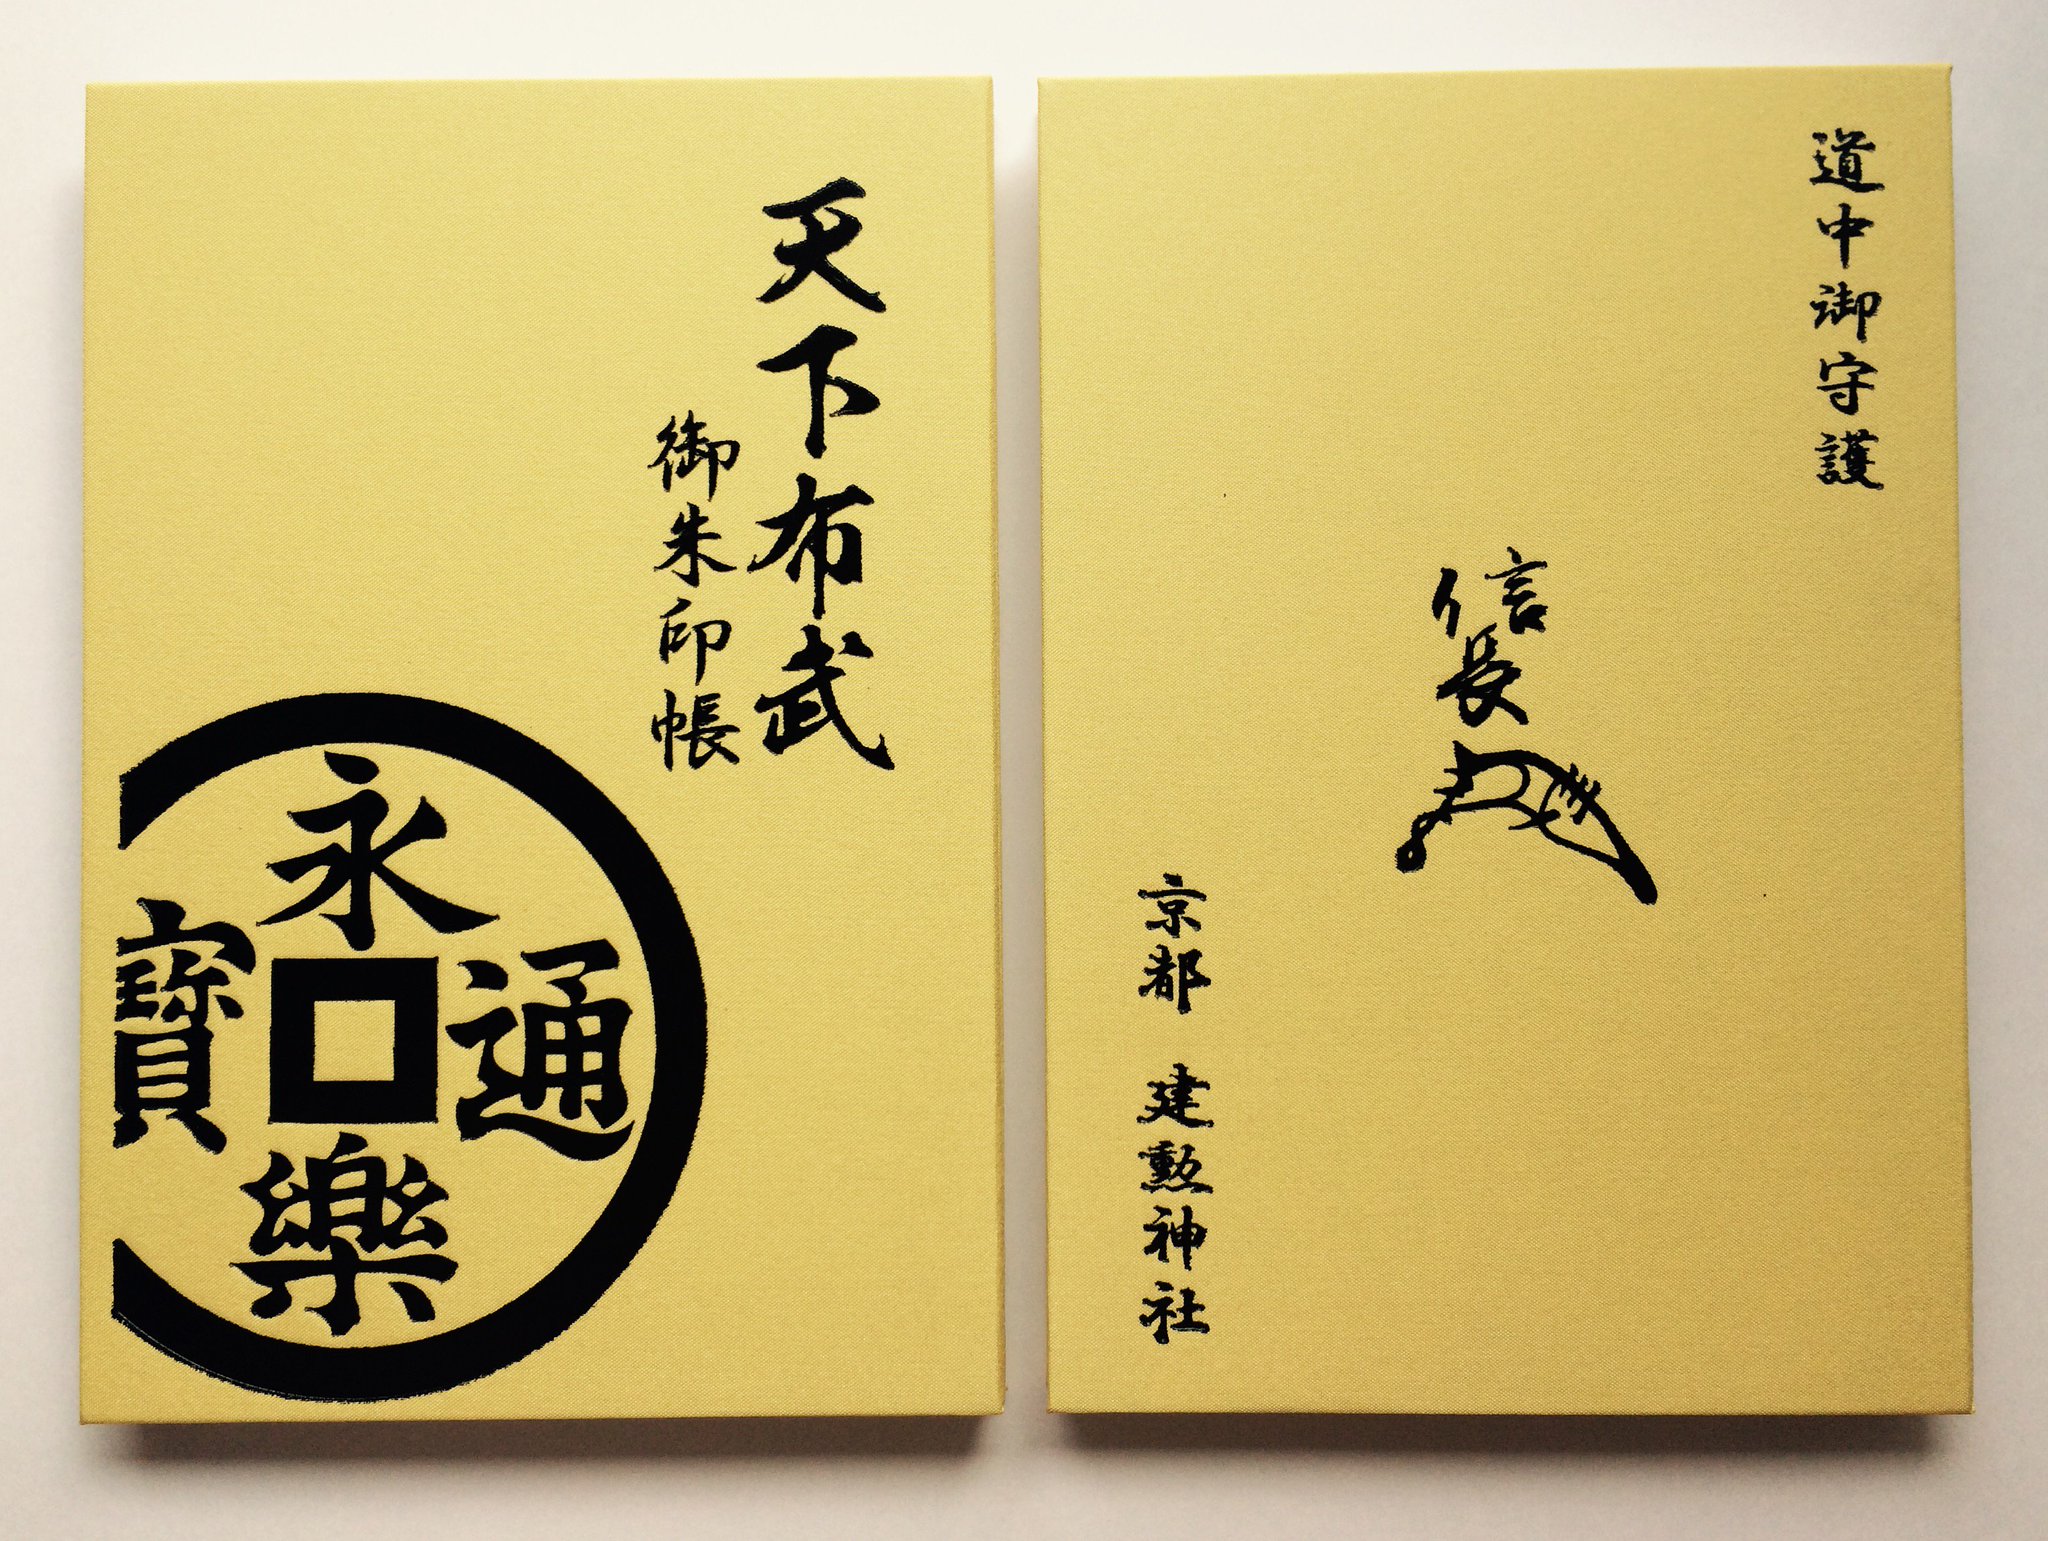 天下布武
御朱印帳
永樂通寶
道中御守護
信長
京都 建勲神社